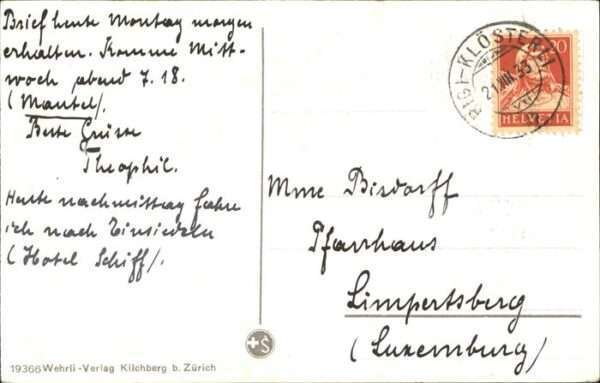 Brief heute Montag morgen
erhalten. Komme Mitt-
woch abend 7.18.
(Mantel).
Beste Grüsse
Theophil.
Heute nachmittag fahre
ich nach Einsiedeln
(Hotel Schiff).
19366 Wehrli-Verlag Kilchberg b. Zürich
S
RIGI-KLÖSTERLI
21.VIII.33
20
HELVETIA
Mme Bisdorff
Pfarrhaus
Limpertsberg
(Luxemburg)